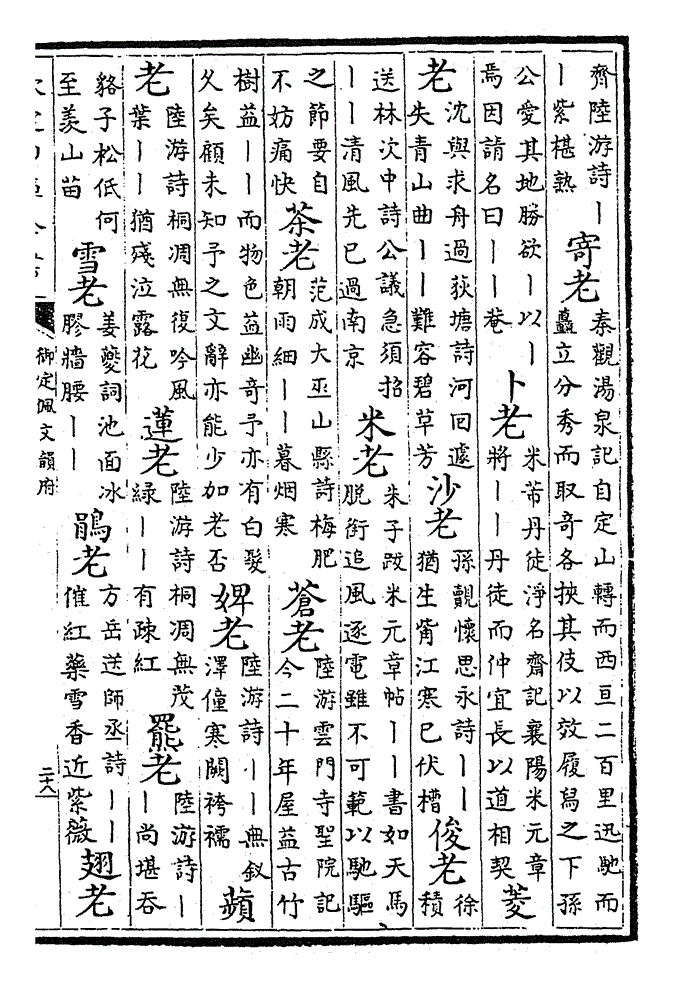 齊陸游詩丨
丨紫椹熟
寄老
秦觀湯泉記自定山轉而西亘二百里迅馳而
矗立分秀而取奇各挾其伎以效履舄之下孫
公愛其地勝欲丨以丨
焉因請名曰丨丨菴
卜老
米芾丹徒淨名齋記襄陽米元章
將丨丨丹徒而仲宜長以道相契
菱
老
沈與求舟過荻塘詩河回遽
失青山曲丨丨難容碧草芳
沙老
孫覿懷思永詩丨丨
猶生江寒已伏槽
俊老
徐
積
送林次中詩公議急須招
丨丨清風先已過南京
米老
朱子跋米元章帖丨丨書如天馬
脫銜追風逐電雖不可範以馳驅
之節要自
不妨痛快
茶老
范成大巫山縣詩梅肥
朝雨細丨丨暮烟寒
蒼老
陸游雲門寺聖院記
今二十年屋益古竹
樹益丨丨而物色益幽奇予亦有白髮
久矣顧未知予之文辭亦能少加老否
婢老
陸游詩丨丨無釵
澤僮寒闕袴襦
蘋
老
陸游詩桐凋無復吟風
葉丨丨猶殘泣露花
蓮老
陸游詩桐凋無茂
緑丨丨有疎紅
羆老
陸游詩丨
丨尚堪吞
貉子松低何
至羨山苗
雪老
姜夔詞池面冰
膠牆腰丨丨
鵑老
方岳送師丞詩丨丨
催紅藥雪香近紫薇
翅老
御定佩文韻府
二十八